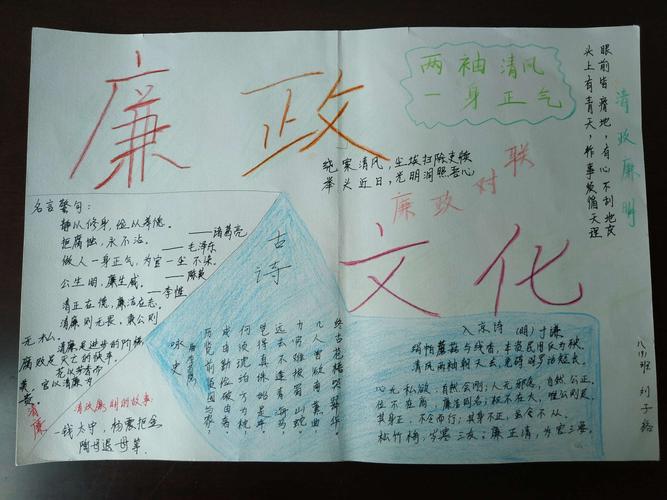 廉政
文化
两袖清风
一身正气
清政廉明
眼前皆瘠地,有心不刮地皮
头上有青天,作事莫偏天理
绕案清风,尘埃扫除吏牍
举头近日,光明洞照吾心
廉政对联
名言警句:
静以修身,俭以养德。
——诸葛亮
拒腐蚀,永不沾。
——毛泽东
做人一身正气,为官一尘不染。
——陈毅
公生明,廉生威。
——李惺
清正在德,廉洁在志。
清廉则无畏,
无私。清廉是进步的阶梯,
腐败是灭亡的
花以芳香而
美,官以清廉为
贵。
清廉
清政廉明的故事:
一钱太守,杨震拒金
陶母退母等。
古诗
咏史
历览前贤国与家,
成由勤俭破由奢。
何须琥珀方为枕,
岂得真珠始是车。
远去不逢青海马,
力穷难拔蜀山蛇。
几人曾预南薰曲,
终古苍梧哭翠华。
入京诗 (明)于谦
绢帕蘑菇与线香,本资民用反为殃
清风两袖朝天去,免得阎罗话短长。
心无私欲,自然会刚;人无邪念,自然公正。
其身正,不令而行;其身不正,虽令不从。
松竹梅,岁寒三友;廉正清,为官三要。
八(4)班 刘子